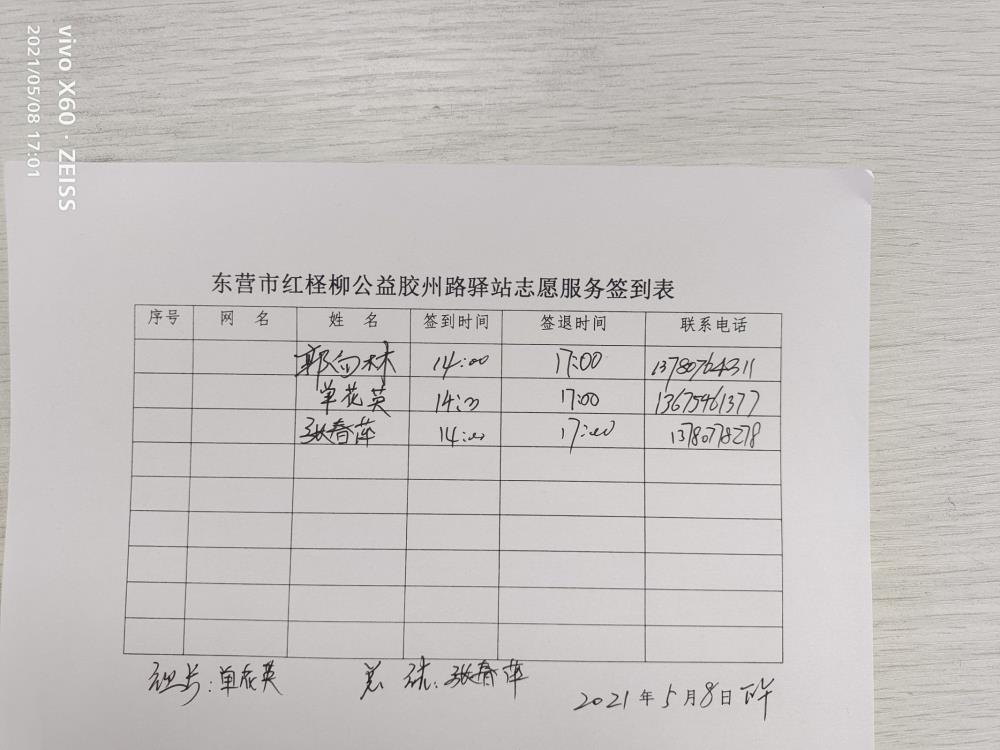 vivo X60 · ZEISS
2021/05/08 17:01
东营市红柽柳公益胶州路驿站志愿服务签到表
序号 网 名 姓 名 签到时间 签退时间 联系电话
14:00 17:00 13780764311
单花英 14:00 17:00 13675461377
张春萍 14:00 17:00 13780778278
组长:单花英 总 结:张春萍
2021年5月8日下午